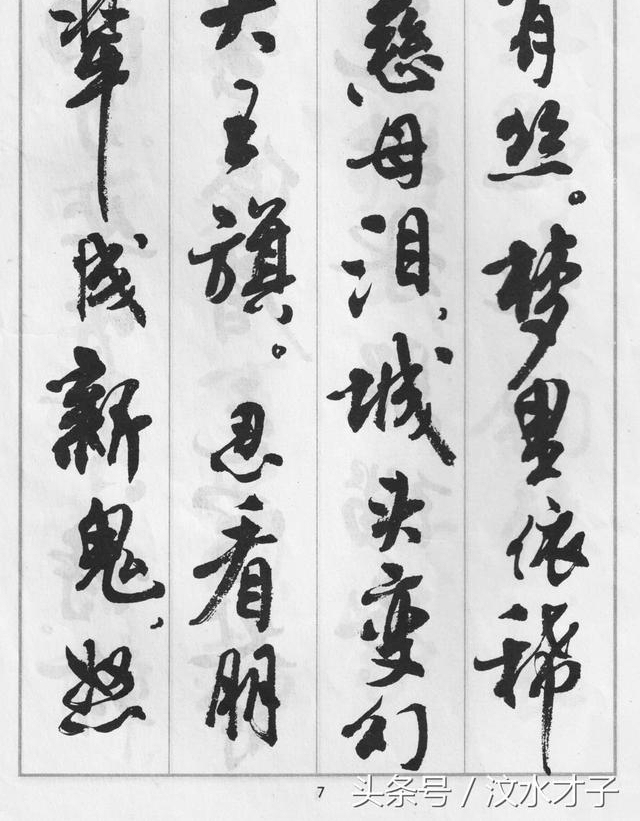 有丝。梦里依稀
慈母泪，城头变幻
大王旗。忍看朋
辈成新鬼，怒
7
头条号 / 汶水才子